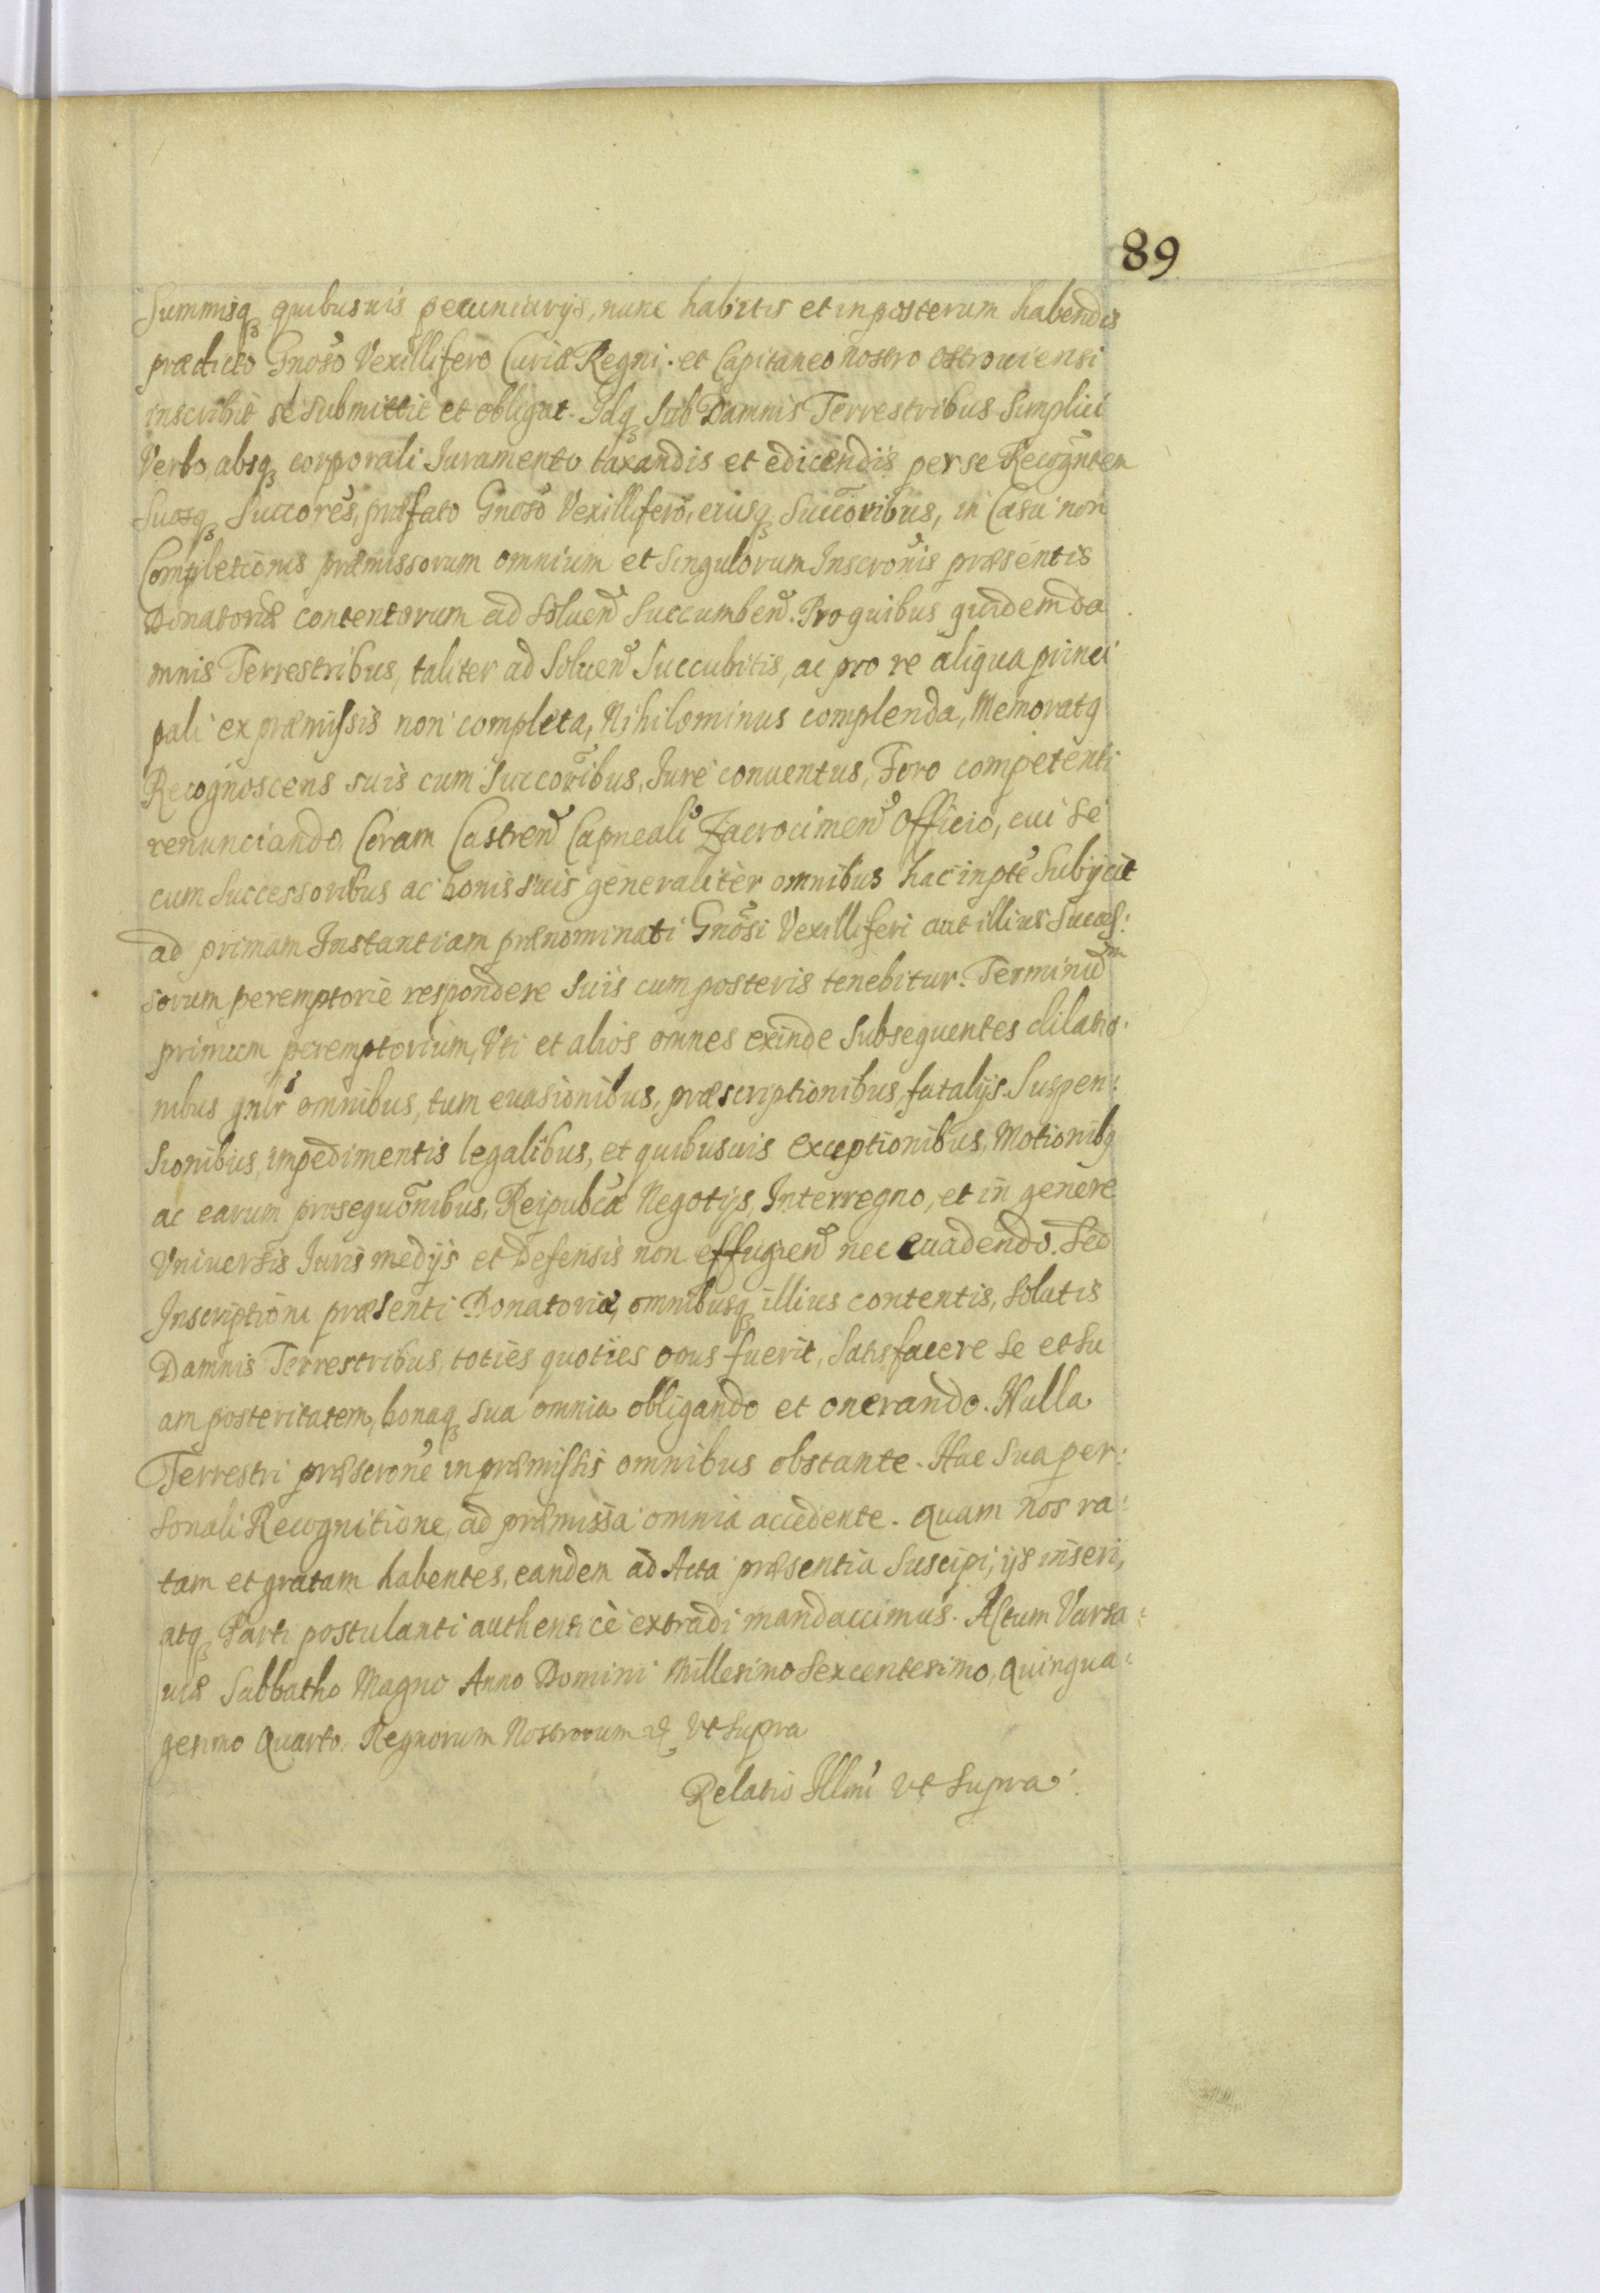 89
Summisq₃ quibusuis pecuniarijs, nunc habitis et in posterum habendis
prædicto Gnoso Vexillifero Curiæ Regni. et Capitaneo nostro Ostrouiensi
inscribit se submittit et obligat. Idq₃ sub Damnis Terrestribus simplici
Verbo absq₃ corporali Iuramento taxandis et edicendis per se Recognten
Suosq₃ Succores, præfato Gnoso Vexillifero, eiusq₃ Succoribus, in Casu non
Completionis præmissorum omnium et singulorum Inscronis præsentis
Donatoriæ contentorum ad soluen̄ Succumben̄. Pro quibus quidem da
mnis Terrestribus, taliter ad soluen̄ Succubitis, ac pro re aliqua princi
pali ex præmissis non completa, Nihilominus complenda, Memoratq
Recognoscens suis cum Succoribus, Iure conuentus, Foro competenti
renunciando, Coram Castren̄ Capneali Zacrocimen̄ Officio, cui se
cum Successoribus ac bonis suis generaliter omnibus hac in pte Subijcit
ad primam Instantiam prænominati Gnosi Vexilliferi aut illius Succes:
sorum peremptorie respondere suis cum posteris tenebitur. Terminūm
primum peremptorium, Vti et alios omnes exinde subsequentes dilatio:
nibus gnlr omnibus, tum euasionibus, præscriptionibus, fatalijs Suspen:
sionibus, impedimentis legalibus, et quibusuis exceptionibus, Motionibq
ac earum prosequōnibus, Reipubcæ Negotijs, Interregno, et in genere
Vniuersis Iuris medijs et Defensis non effugien̄ nec euadendo. Sed
Inscriptioni præsenti Donatoriæ, omnibusq₃ illius contentis, solutis
Damnis Terrestribus, toties quoties opus fuerit, Satisfacere se et su
am posteritatem, bonaq₃ sua omnia obligando et onerando. Nulla
Terrestri præscrone in præmissis omnibus obstante. Hac sua per:
sonali Recognitione, ad præmissa omnia accedente. Quam nos ra:
tam et gratam habentes, eandem ad Acta præsentia suscipi, ijs inseri,
atq₃ Parti postulanti authentice extradi mandauimus. Actum Varsa:
uiæ Sabbatho Magno Anno Domini Millesimo Sexcentesimo, Quinqua:
gesimo Quarto. Regnorum Nostrorum &c Vt supra
Relatio Illmi vt supra.